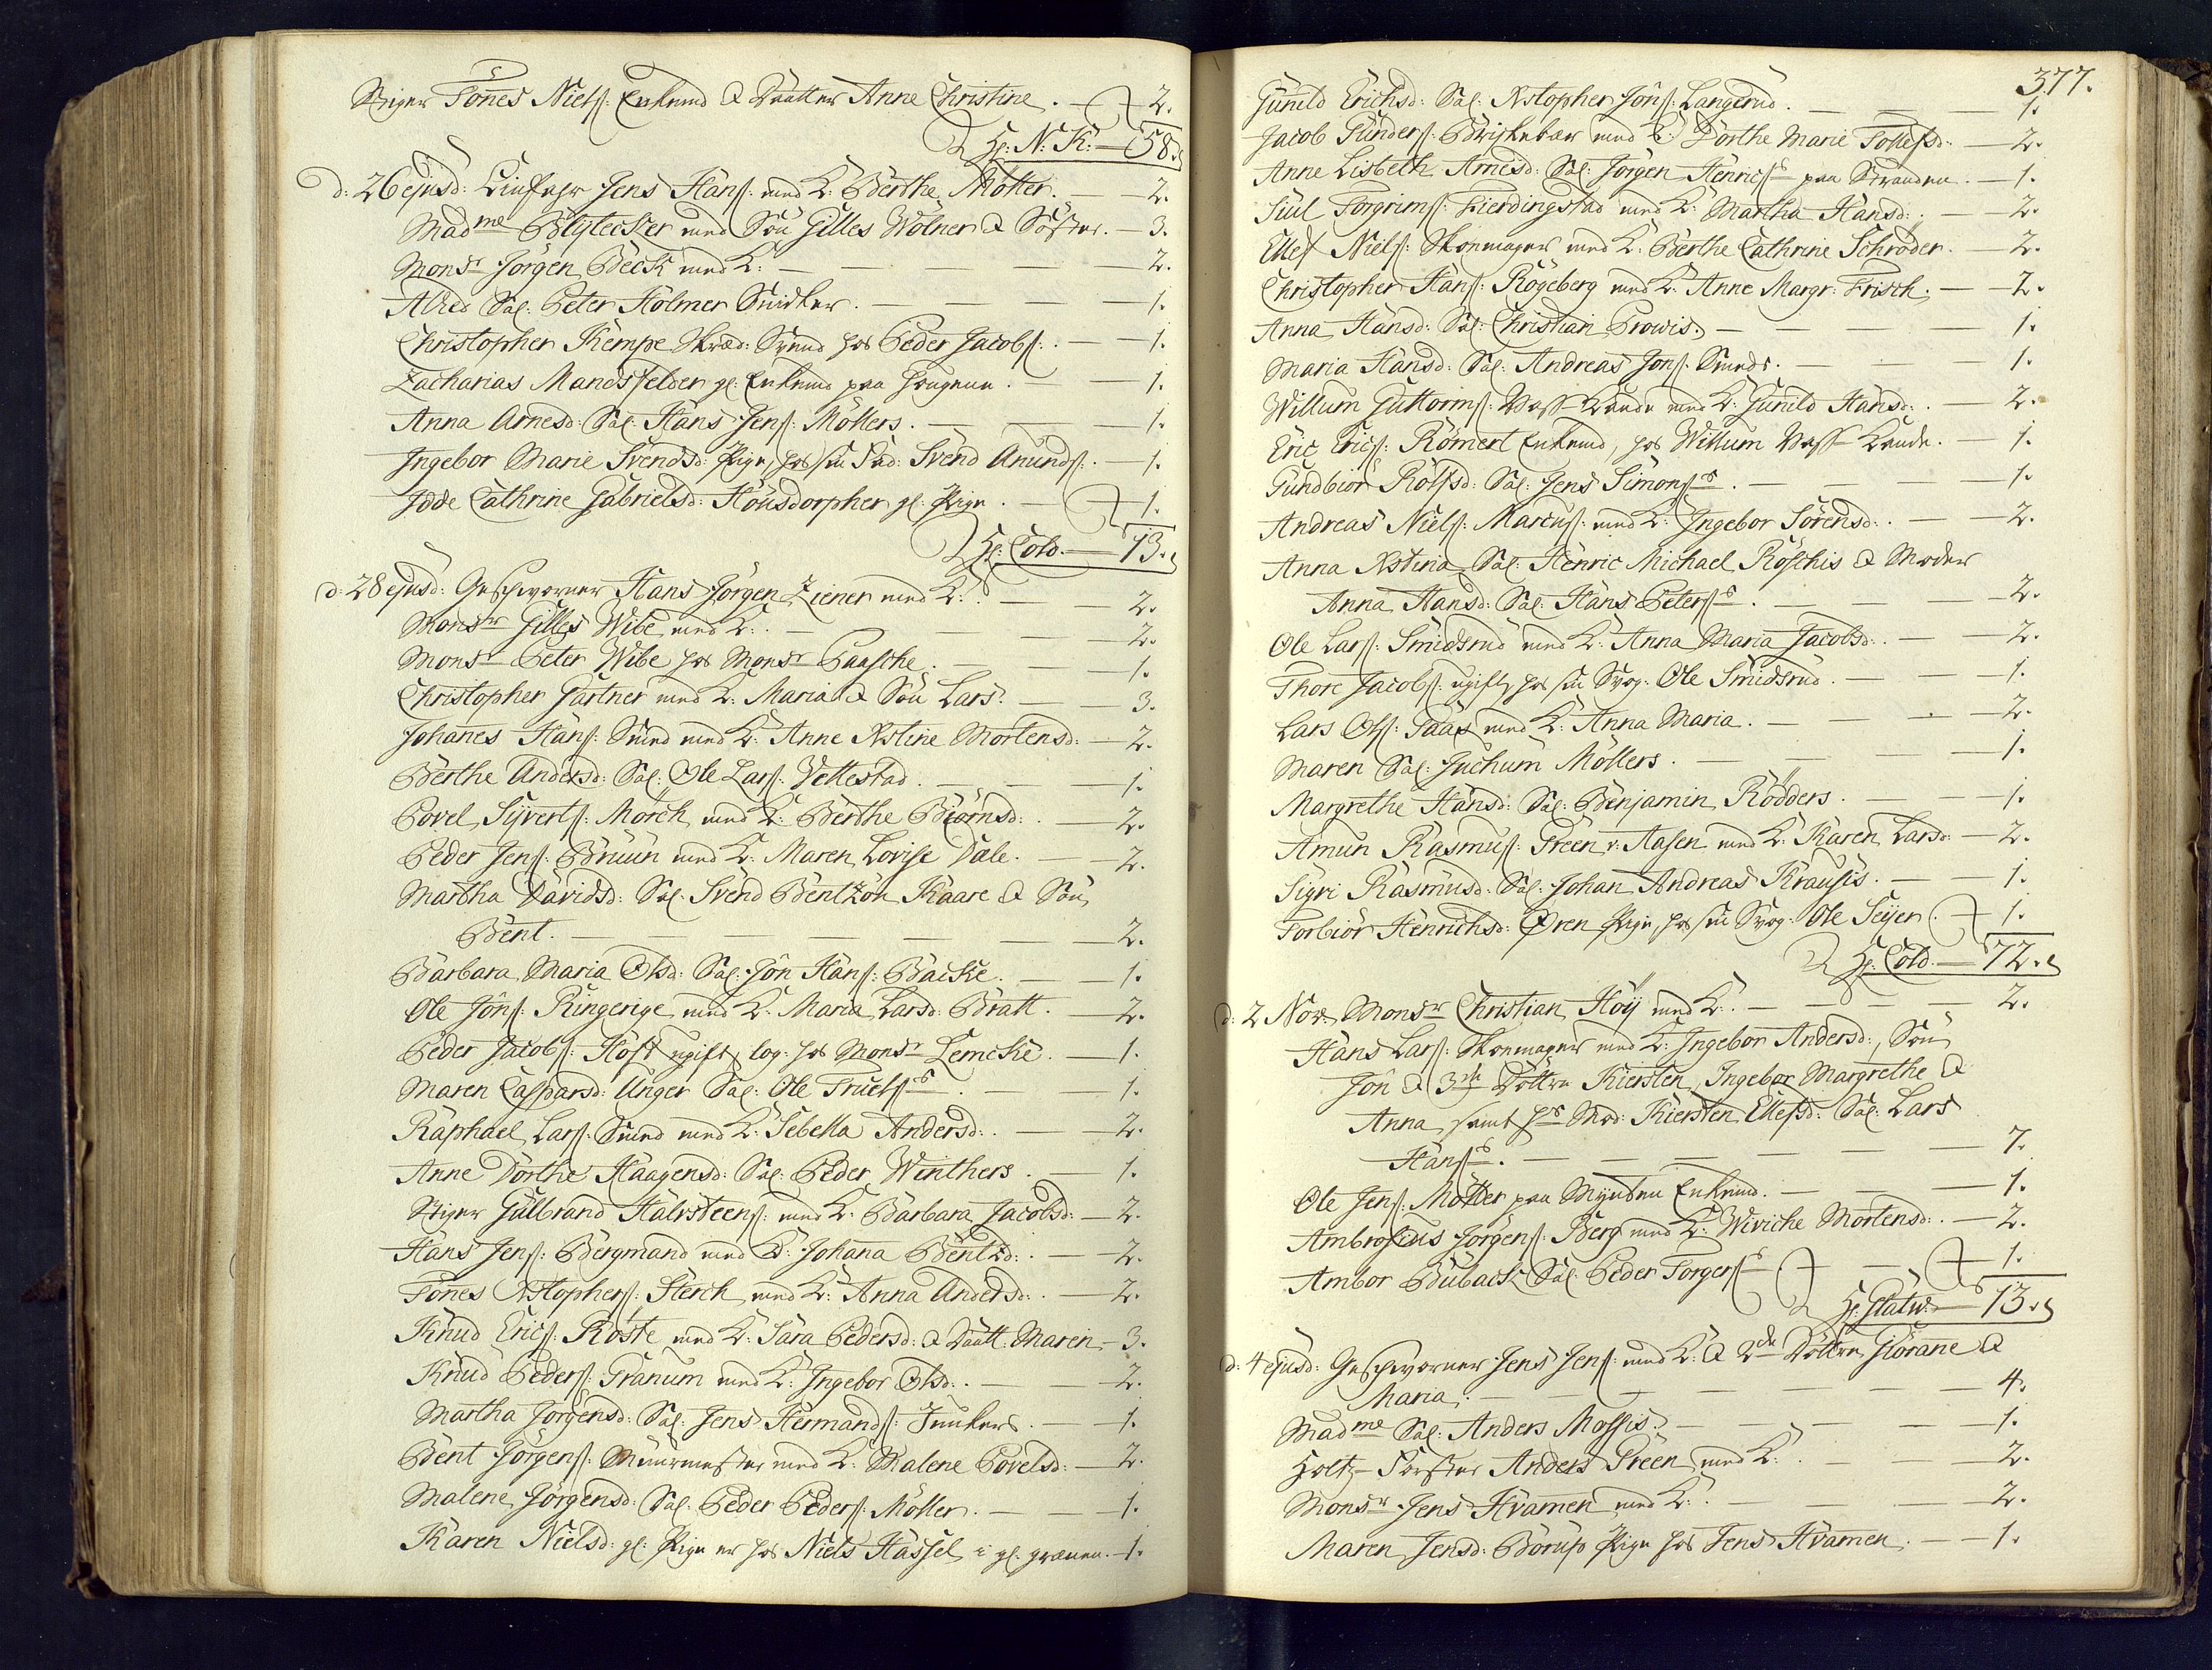 Stiger Tönes Nielß: Enkemd & Daatter Anne Christine. — 2.
H: N: K: — 58.
d: 26 ejusd: Jens Hanß: med K: Berthe Möller. — 2.
Madme Blÿtecker med Søn Gilles Wölner & Søster. — 3.
Monsr Jörgen Beck med K: — 2.
Alhed Sal: Peter Holmer Snidker. — 1.
Christopher Kempe Skræd: Svend hos Peder Jacobß: — 1.
Zacharias Mandsfelder gl: Enkemd paa Haugene. — 1.
Anna Arnesd: Sal: Hans Jenß: Möllers. — 1.
Ingebor Marie Svendsd: Pige, hos sin Fad: Svend Amundß: — 1.
Jdde Cathrine Gabrielsd: Housdorpher gl: Pige. — 1.
H: Cold. — 13.
d: 28 ejusd: Geschworner Hans Jörgen Ziener med K: — 2.
Monsr Gilles Wibe med K: — 2.
Monsr Peter Wibe hos Monsr Paasche. — 1.
Christopher Gartner med K: Maria & Søn Lars. — 3.
Johanes Hanß: Smed med K: Anne Xstine Mortensd: — 2.
Berthe Andersd: Sal: Ole Larß: Vettestad. — 1.
Povel Sÿvertß: Mörch med K: Berthe Biörnsd: — 2.
Peder Jenß: Bruun med K: Maren Lovise Dale. — 2.
Martha Davidsd: Sal: Svend Bentzön Kaare & Søn
Bent. — 2.
Barbara Maria Olsd: Sal: Jon Hanß: Backe. — 1.
Ole Jonß: Ringerige med K: Maria Larsd: Bratt. — 2.
Peder Jacobß: Höst ugift, log: hos Monsr Lemcke. — 1.
Maren Caspersd: Unger Sal: Ole Truelßs. — 1.
Raphael Larß: Smed med K: Sebella Andersd: — 2.
Anne Dorthe Haagensd: Sal: Peder Winthers. — 1.
Stiger Gulbrand Halvsteenß: med K: Barbara Jacobsd: — 2.
Hans Jenß: Bergmand med K: Johana Bentzd: — 2.
Tönes Xstopherß: Sterch med K: Anna Andersd: — 2.
Knud Ericß: Roste med K: Sara Pedersd: & Daatt: Maren — 3.
Knud Pederß: Granum med K: Ingebor Olsd: — 2.
Martha Jörgensd: Sal: Jens Hermandß: Junkers. — 1.
Bent Jörgenß: Muurmester med K: Malene Povelsd: — 2.
Malene Jörgensd: Sal: Peder Pederß: Möller. — 1.
Karen Nielsd: gl: Pige er hos Niels Hassel i gl: — 1.
377.
Gunild Erichsd: Sal: Xstopher Jonß: Langerud. — 1.
Jacob Gunderß: med K: Dorthe Marie Tollefsd: — 2.
Anne Lisbeth Arnesd: Sal: Jörgen Henricßs paa Stranden. — 1.
Juul Torgrimß: Fierdingstad med K: Martha Hansd: — 2.
Ellef Nielß: Skoemager med K: Berthe Cathrine Schröder. — 2.
Christopher Hanß: Rögeberg med K: Anne Margr: Frisch. — 2.
Anna Hansd: Sal: Christian Prowis. — 1.
Maria Hansd: Sal: Andreas Jonß: Smeds. — 1.
Willum Guttormß: med K: Gunild Hansd: — 2.
Eric Ericß: Römert Enkemd, hos Willum — 1.
Gundbior Rolfsd: Sal: Jens Simonßs. — 1.
Andreas Nielß: Marcusß: med K: Ingebor Sörensd: — 2.
Anna Xstina Sal: Henric Michael Röschis & Moder
Anna Hansd: Sal: Hans Peterßs. — 2.
Ole Larß: Smidsrud med K: Anna Maria Jacobsd: — 2.
Thore Jacobß: ugift, hos sin Svog: Ole Smidsrud. — 1.
Lars Olß: Saas med K: Anna Maria. — 2.
Maren Sal: Juchum Möllers. — 1.
Margrethe Hansd: Sal: Benjamin Rödders. — 1.
Amun Rasmusß: Green v: Aasen med K: Karen Larsd: — 2.
Sigri Rasmusd: Sal: Johan Andreas Krausis. — 1.
Torbiör Henrichsd: Øren Pige, hos sin Svog: Ole Seÿer. — 1.
H: Cold. — 72.
d: 2 Nov: Monsr Christian Höÿ med K: — 2.
Hans Larß: Skoemager med K: Ingebor Andersd:, Søn
Jon & 3de Döttre Kiersten, Ingebor Margrethe &
Anna, samt hs Mod: Kiersten Ellefsd: Sal: Lars
Hanßs. — 7.
Ole Jenß: Möller paa Mÿnten Enkemd. — 1.
Ambrosius Jörgenß: Berg med K: Wiviche Mortensd: — 2.
Ambor Buback Sal: Peder Torgerßs — 1.
H: Flatw: — 13.
d: 4 ejusd: Geschworner Jens Jenß: med K: & 2de Döttre Glörane &
Maria: — 4.
Madme Sal: Anders Mossis. — 1.
Holtz-Forster Anders Green med K: — 2.
Monsr Jens Hvamen med K: — 2.
Maren Jensd: Borup Pige hos Jens Hvamen. — 1.